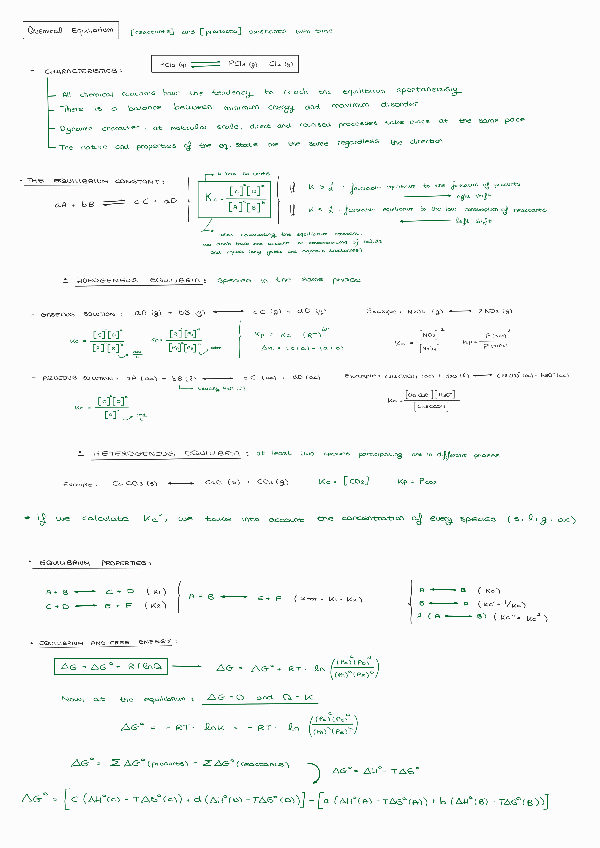 Chemical Equilibrium [reactants] and [products] constants with time
PCl5 (g) ⇌ PCl3 (g) Cl2 (g)
- CHARACTERISTICS:
All chemical reactions have the tendency to reach the equilibrium spontaneously
There is a balance between minimum energy and maximum disorder
Dynamic character: at molecular scale, direct and reverse processes take place at the same pace
The nature and properties of the eq. state are the same regardless the direction
- THE EQUILIBRIUM CONSTANT:
it has no units
aA + bB ⇌ cC + dD Kc = [C]^c [D]^d / [A]^a [B]^b
if K > 1 : favourable equilibrium to the formation of products
right shift
if K < 1 : favourable equilibrium to the low consumption of reactants
left shift
when calculating the equilibrium constant,
* HOMOGENEUS EQUILIBRIA: species in the same phase
- GASEOUS SOLUTION: aA (g) + bB (g) ⟷ cC (g) + dD (g) Example: N2O4 (g) ⟷ 2NO2 (g)
Kc = [C]^c [D]^d / [A]^a [B]^b Kp = Kc (RT)^Δn Kc = [NO2]^2 / [N2O4]
Δn = (c+d) - (a+b)
- AQUEOUS SOLUTION: aA (ac) + bB (l) ⟷ cC (ac) + dD (ac)
Kc = [C]^c [D]^d / [A]^a
* HETEROGENEUS EQUILIBRIA: at least two species participating are in different phases
Example: CaCO3 (s) ⟷ CaO (s) + CO2 (g) Kc = [CO2] Kp = PCO2
* if we calculate Kc', we take into account the concentration of every species (s, l, g, ac)
* EQUILIBRIUM PROPERTIES:
A + B ⟷ C + D (K1) A + B ⟷ E + F A ⟷ B (Kc)
C + D ⟷ E + F (K2) B ⟷ A (Kc' = 1/Kc)
2 (A ⟷ B) (Kc'' = Kc^2)
* EQUILIBRIUM AND FREE ENERGY:
ΔG = ΔG° + RT lnQ ⟶ ΔG = ΔG° + RT · ln ((Pc)^c (PD)^d / (PA)^a (PB)^b)
Now, at the equilibrium: ΔG = 0 and Q = K
ΔG° = - RT · lnK = - RT · ln ((Pc)^c (PD)^d / (PA)^a (PB)^b)
ΔG° = Σ ΔG° (products) - Σ ΔG° (reactants)
ΔG° = ΔH° - TΔS°
ΔG° = [c (ΔH°(C) - TΔS°(C)) + d (ΔH°(D) - TΔS°(D))] - [a (ΔH°(A) - TΔS°(A)) + b (ΔH°(B) - TΔS°(B))]